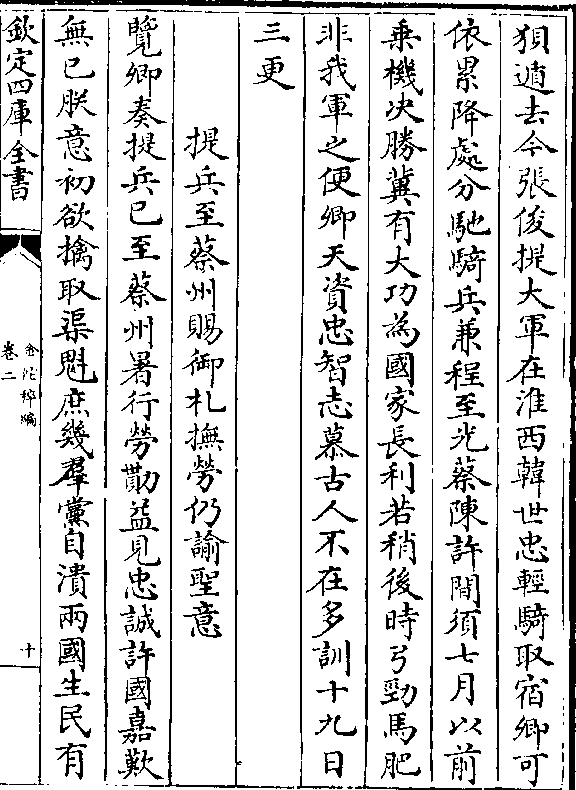 狽遁去今張俊提大軍在淮西韓世忠輕騎取宿卿可
依累降處分馳騎兵兼程至光蔡陳許間須七月以前
乗機决勝冀有大功為國家長利若稍後時弓勁馬肥
非我軍之便卿天資忠智志慕古人不在多訓十九日
三更
提兵至蔡州賜御札撫勞仍諭聖意
覽卿奏提兵已至蔡州暑行勞勩益見忠誠許國嘉歎
無已朕意初欲擒取渠魁庶幾羣黨自潰兩國生民有
欽定四庫全書
金陀稡編
卷二
十